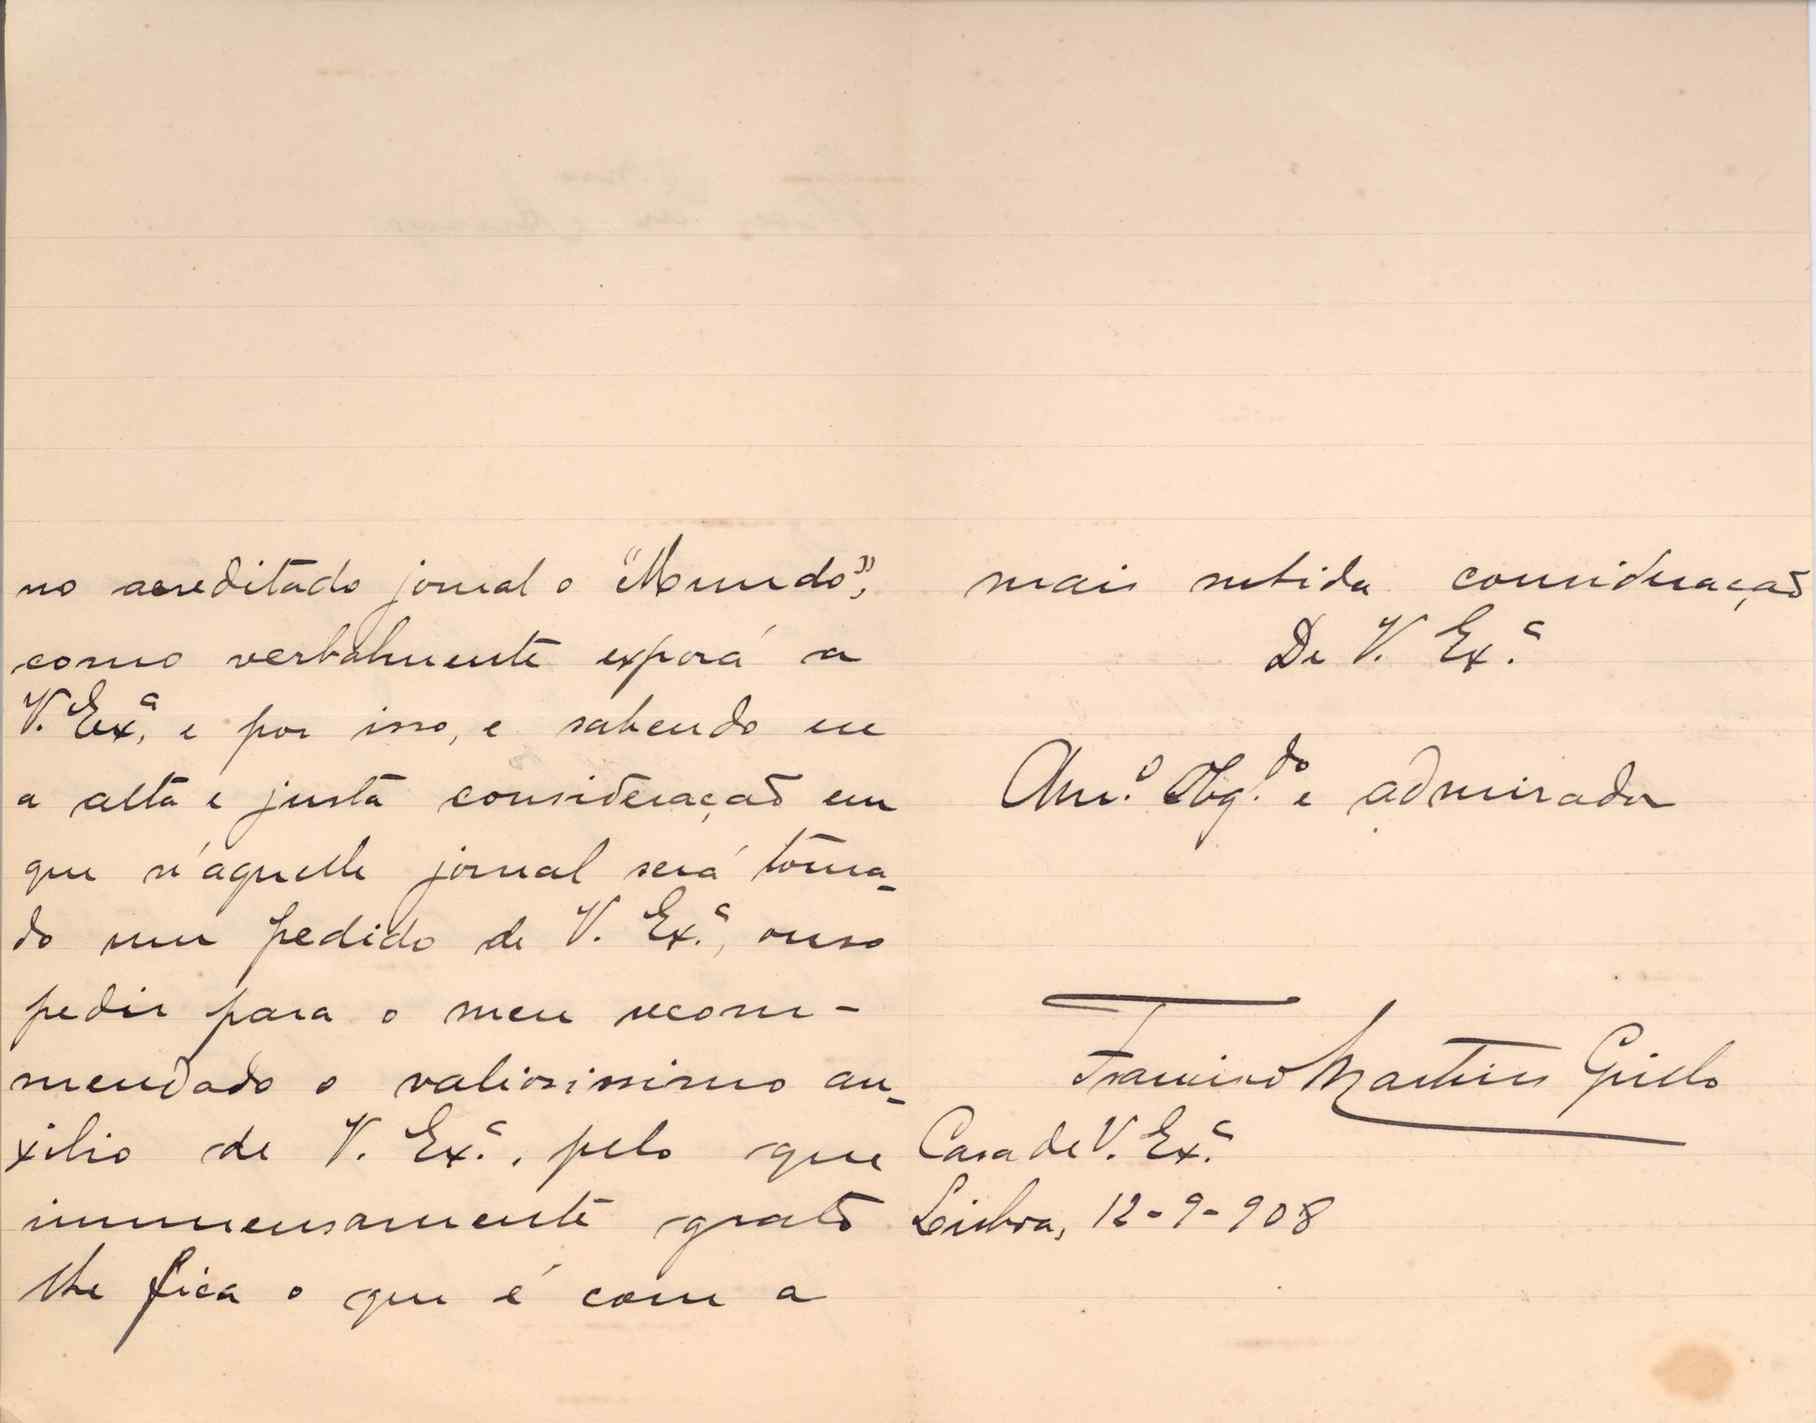 no acreditado jornal o "Mundo",
como verbalmente exporá a
V. Exª, e por isso, e sabendo eu
a alta e justa consideração em
que n'aquelle jornal será toma-
do um pedido de V. Exª, ouso
pedir para o meu recom-
mendado o valiosissimo au-
xilio de V. Exª, pelo que
immensamente grato
lhe fica o que é com a
mais subida consideração
De V. Exª
Amº Obgdo e admirador
Francisco Martins Grillo
Casa de V. Exª
Lisboa, 12-9-908